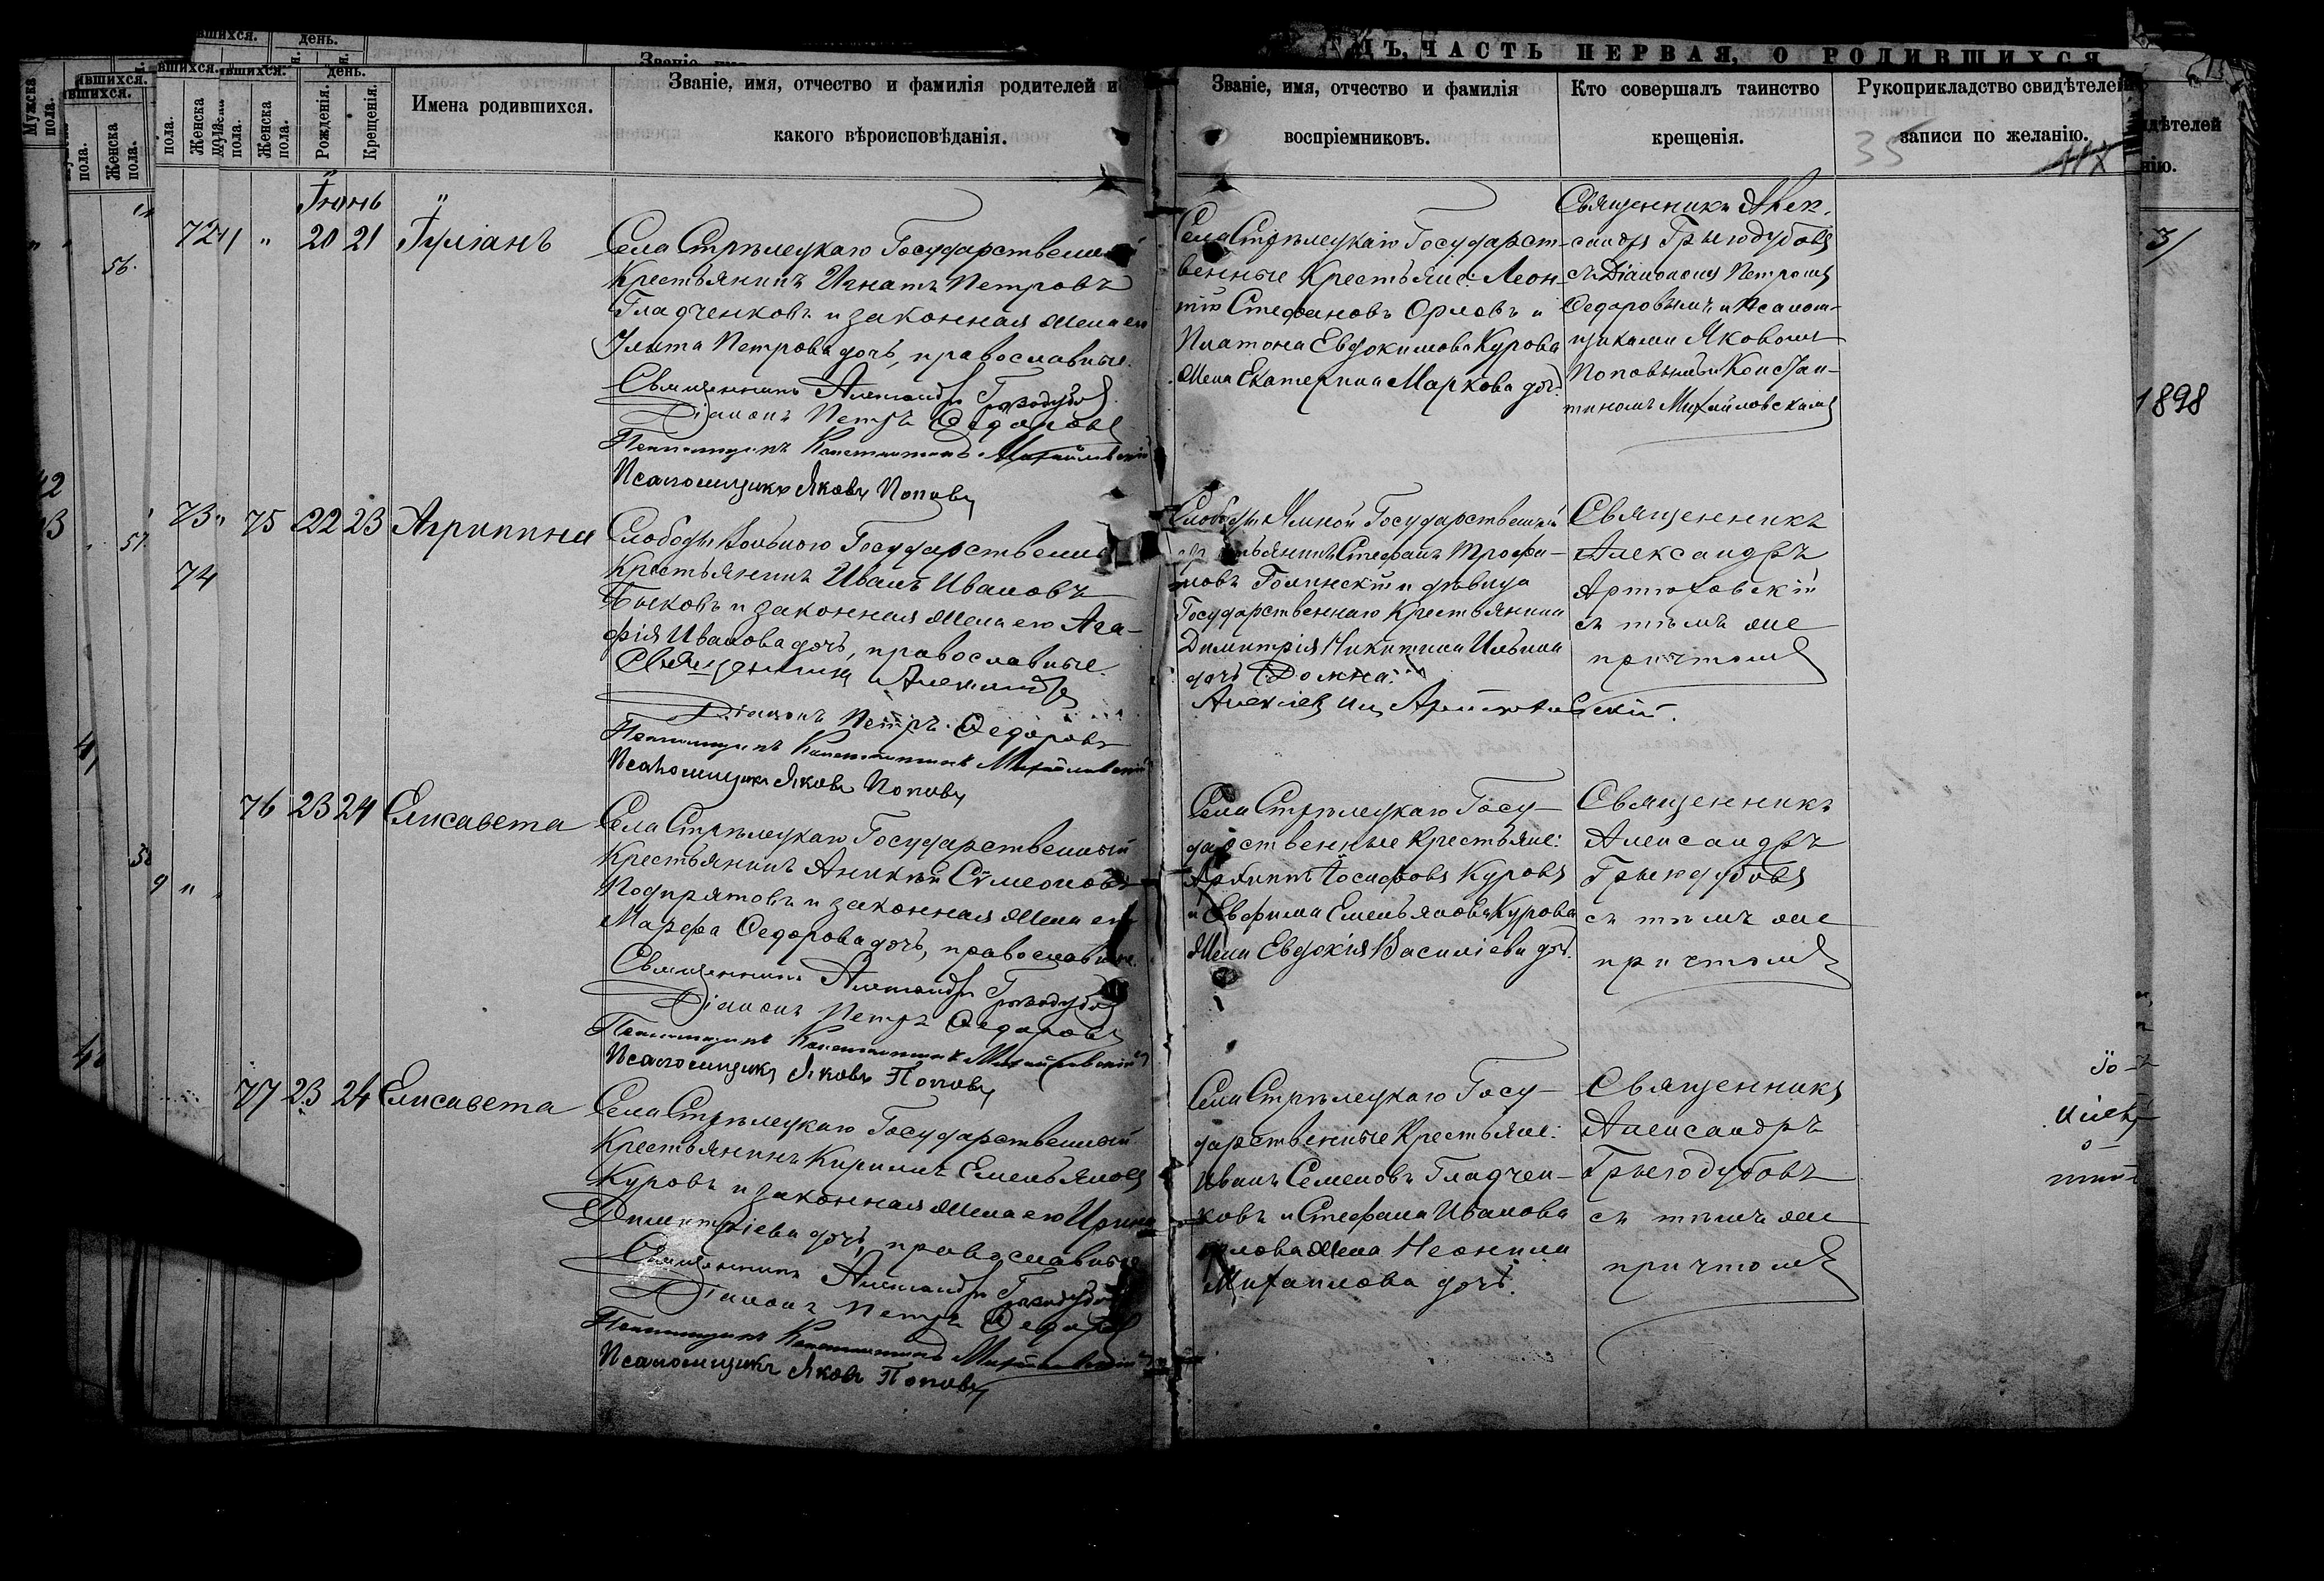 Ъ, ЧАСТЬ ПЕРВАЯ, О РОДИВШИХСЯ
Мужска пола.
Женска пола.
Рожденія.
день.
Крещенія.
Имена родившихся.
Званіе, имя, отчество и фамилія родителей и
какого вѣроисповѣданія.
Званіе, имя, отчество и фамилія
воспріемниковъ.
Кто совершалъ таинство
крещенія.
Рукоприкладство свидѣтелей
записи по желанію.
35
Іюнь
20 21 Іуліанъ
Села Стрѣлецкаго Государственный
Крестьянинъ Игнатъ Петровъ
Гладченковъ и законная жена его
Улита Петрова дочь, православные.
Священникъ Александръ Грыюдубовъ
Діаконъ Петръ Ѳедоровъ
Псаломщикъ Константинъ Михайловскій
Псаломщикъ Яковъ Поповъ
Села Стрѣлецкаго Государст-
венные Крестьяне: Леон-
тій Стефановъ Орловъ и
Платона Евдокимова Курова
жена Екатерина Маркова дочь.
Священникъ Алек-
сандръ Грыюдубовъ
съ Діакономъ Петромъ
Ѳедоровымъ и Псалом-
щиками Яковомъ
Поповымъ и Констан-
тиномъ Михайловскимъ
75 22 23 Агриппина
Слободы Вольного Государственный
Крестьянинъ Иванъ Ивановъ
Быковъ и законная жена его Ага-
фія Иванова дочь, православные.
Священникъ Александръ
Діаконъ Петръ Ѳедоровъ
Псаломщикъ Константинъ Михайловскій
Псаломщикъ Яковъ Поповъ
Слободы Ямной Государственный
Крестьянинъ Стефанъ Трофи-
мовъ Голинскій и дѣвица
Государственнаго Крестьянина
Димитрія Никитина Ильина
дочь Домна.
Алексіевъ Артюховскій.
Священникъ
Александръ
Артюховскій
съ тѣмъ же
причтомъ
76 23 24 Елисавета
Села Стрѣлецкаго Государственный
Крестьянинъ Аникій Сѵмеоновъ
Подпрятовъ и законная жена его
Марфа Ѳедорова дочь, православные.
Священникъ Александръ Грыюдубовъ
Діаконъ Петръ Ѳедоровъ
Псаломщикъ Константинъ Михайловскій
Псаломщикъ Яковъ Поповъ
Села Стрѣлецкаго Госу-
дарственные Крестьяне:
Архиппъ Іосифовъ Куровъ
и Евфима Емельянова Курова
жена Евдокія Василіева дочь.
Священникъ
Александръ
Грыюдубовъ
съ тѣмъ же
причтомъ
77 23 24 Елисавета
Села Стрѣлецкаго Государственный
Крестьянинъ Кириллъ Емельяновъ
Куровъ и законная жена его Ирина
Димитріева дочь, православные
Священникъ Александръ Грыюдубовъ
Діаконъ Петръ Ѳедоровъ
Псаломщикъ Константинъ Михайловскій
Псаломщикъ Яковъ Поповъ
Села Стрѣлецкаго Госу-
дарственные Крестьяне:
Иванъ Семеновъ Гладчен-
ковъ и Стефана Иванова
Орлова жена Неонила
Михаилова дочь.
Священникъ
Александръ
Грыюдубовъ
съ тѣмъ же
причтомъ
1898